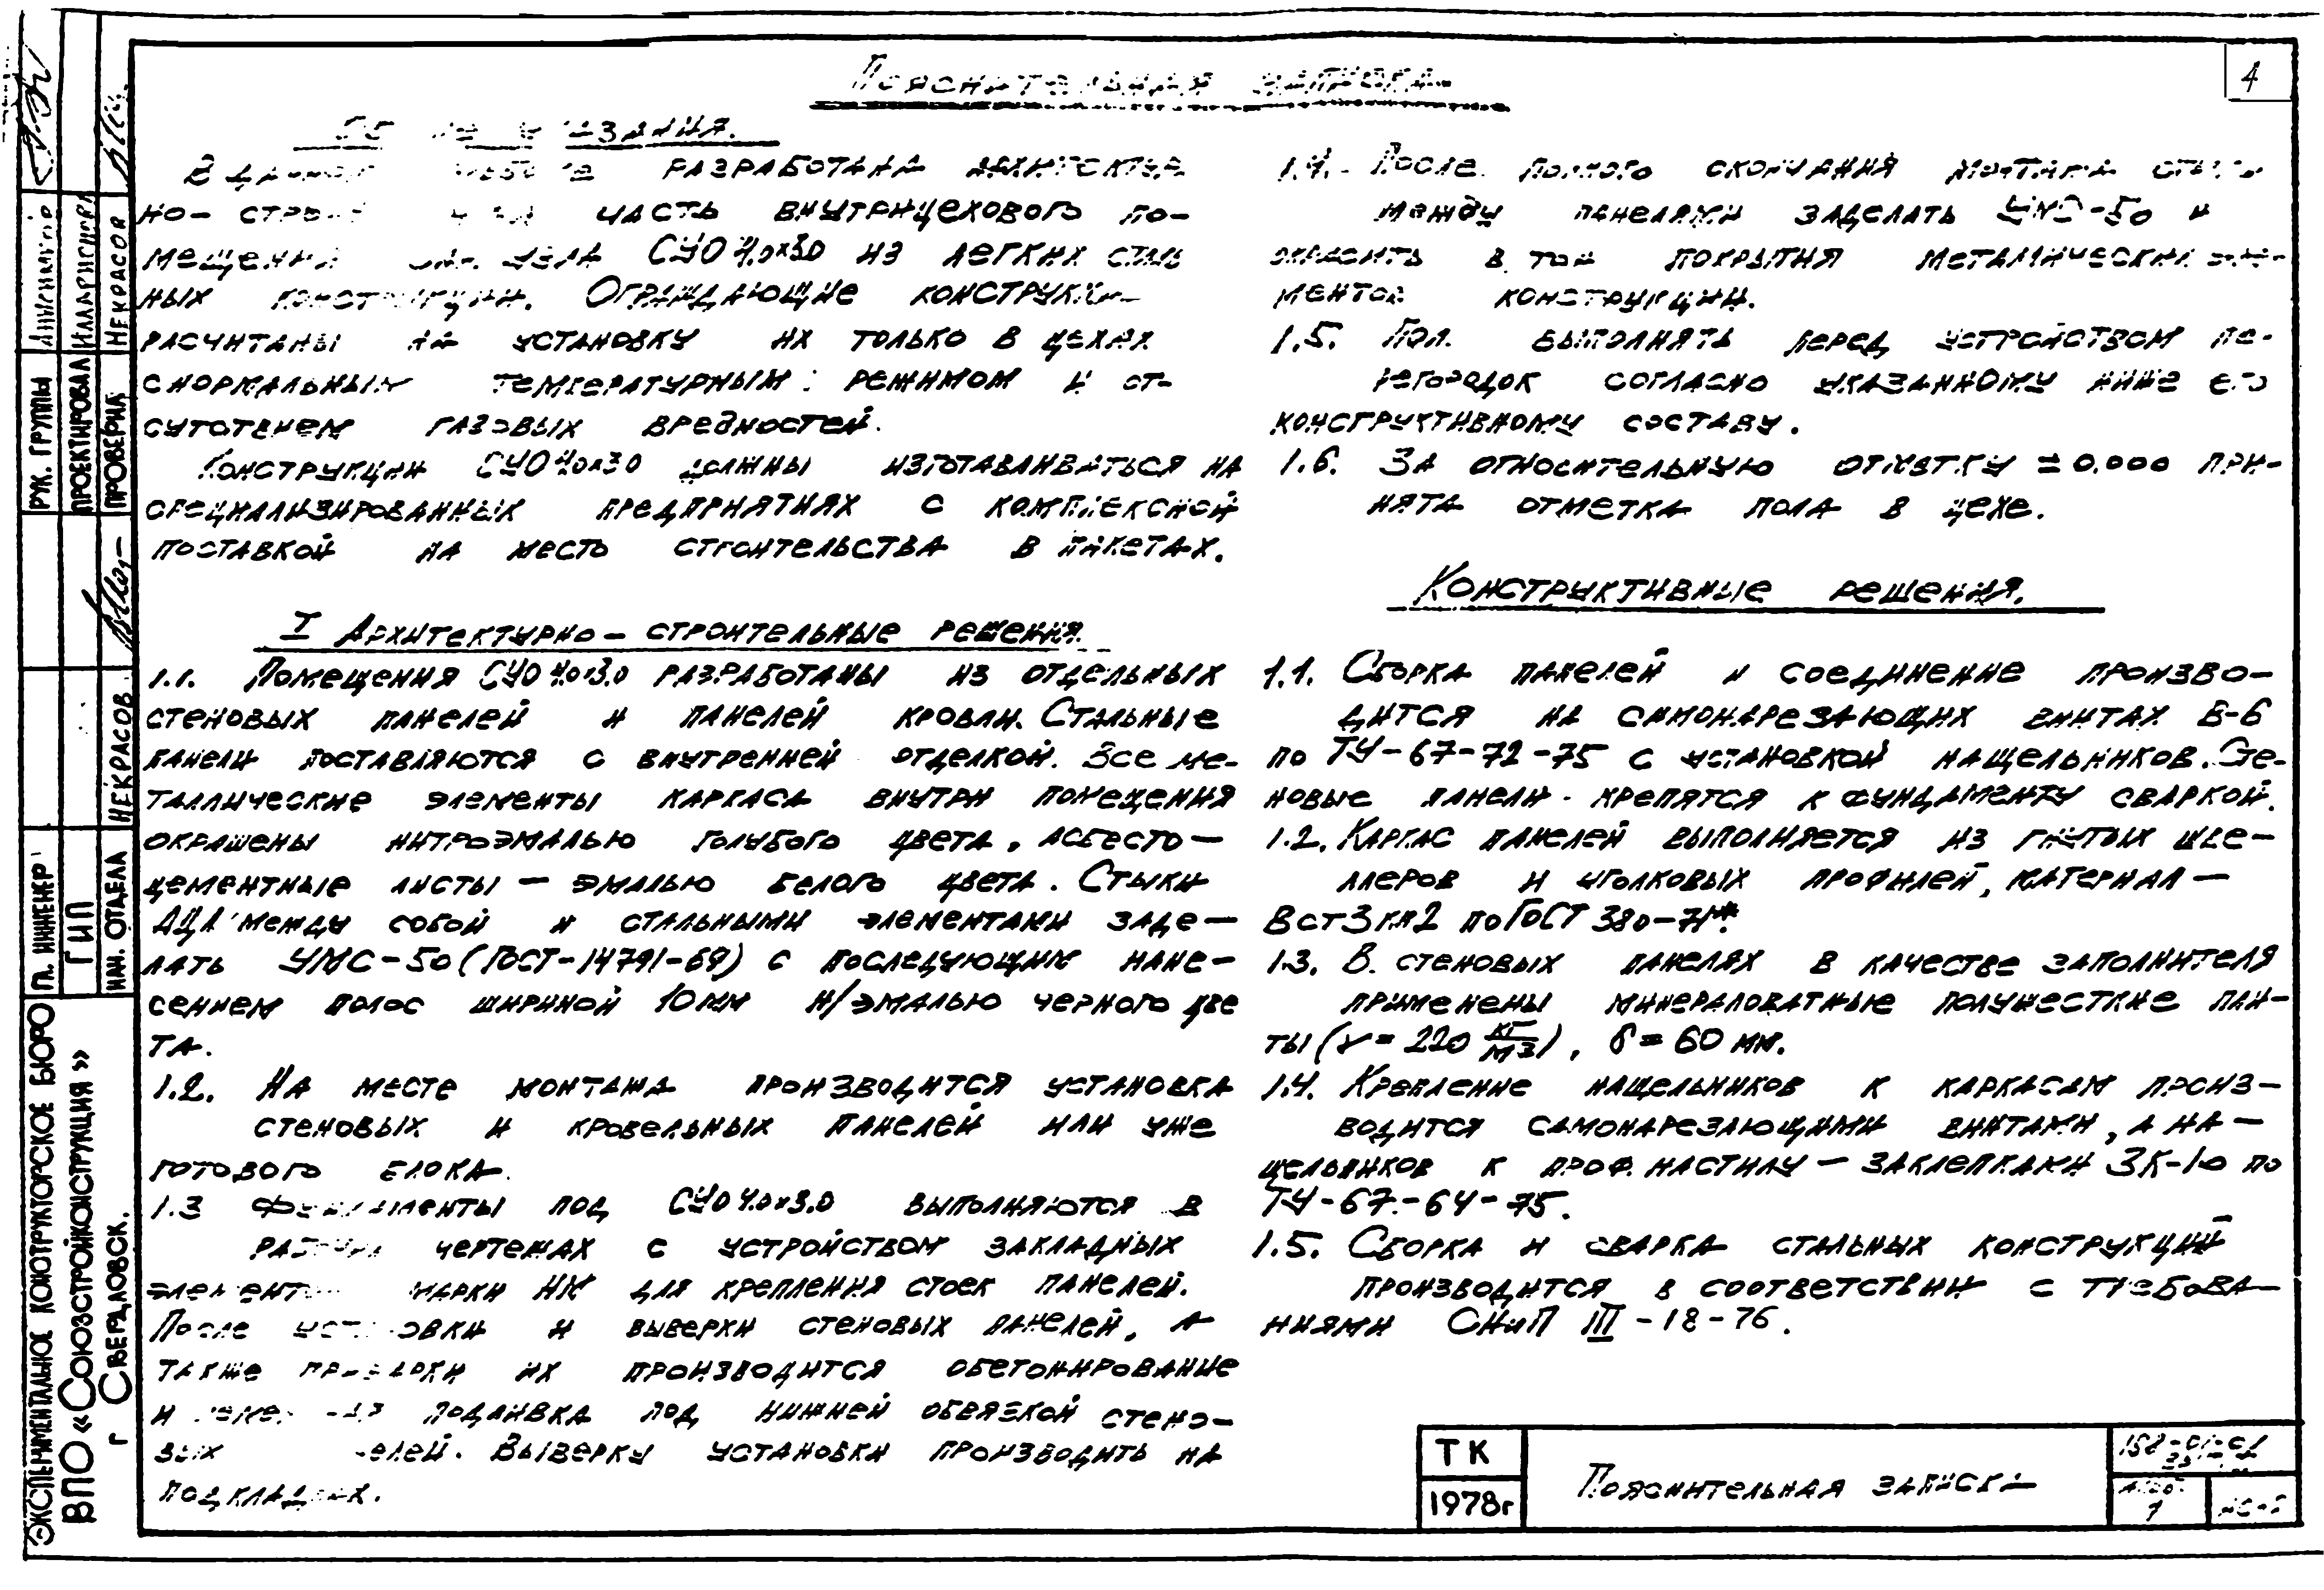 Пояснительная записка
4
В данной работе разработана архитектур
но-строи часть внутрицехового по-
мещения СУО 4.0х3.0 из легких сталь
ных конструкций. Ограждающие конструкции
расчитаны на установку их только в цехах
с нормальным температурным режимом и от-
сутствием газовых вредностей.
Конструкции СУО 4.0х3.0 должны изготавливаться на
специализированных предприятиях с комплексной
поставкой на место строительства в пакетах.
I Архитектурно-строительные решения.
1.1. Помещения СУО 4.0х3.0 разработаны из отдельных
стеновых панелей и панелей кровли. Стальные
панели поставляются с внутренней отделкой. Все ме-
таллические элементы каркаса внутри помещения
окрашены нитроэмалью голубого цвета, асбесто-
цементные листы - эмалью белого цвета. Стыки
АЦЛ между собой и стальными элементами заде-
лать УМС-50 (ГОСТ-14791-69) с последующим нане-
сением полос шириной 10мм н/эмалью черного цве
та.
1.2. На месте монтажа производится установка
стеновых и кровельных панелей или уже
готового блока.
1.3 Фундаменты под СУО 4.0х3.0 выполняются в
рабочих чертежах с устройством закладных
элементов марки НК для крепления стоек панелей.
После установки и выверки стеновых панелей, а
также приварки их производится обетонирование
и подливка под нижней обвязкой стено-
вых панелей. Выверку установки производить на
подкладках.
1.4. После полного окончания монтажа стыки
между панелями заделать УМС-50 и
окрасить в тон покрытия металлических эле-
ментов конструкции.
1.5. Пол выполнять перед устройством пе-
регородок согласно указанному ниже его
конструктивному составу.
1.6. За относительную отметку ±0.000 при-
нята отметка пола в цехе.
Конструктивные решения.
1.1. Сборка панелей и соединение произво-
дится на самонарезающих винтах В-6
по ТУ-67-72-75 с установкой нащельников. Сте-
новые панели крепятся к фундаменту сваркой.
1.2. Каркас панелей выполняется из гнутых шве-
ллеров и уголковых профилей, материал -
Вст3кп2 по ГОСТ 380-71*.
1.3. В стеновых панелях в качестве заполнителя
применены минераловатные полужесткие пли-
ты (γ = 220 кг/м3), δ = 60 мм.
1.4. Крепление нащельников к каркасам произ-
водится самонарезающими винтами, а на-
щельников к проф. настилу - заклепками ЗК-10 по
ТУ-67-64-75.
1.5. Сборка и сварка стальных конструкций
производится в соответствии с требова-
ниями СНиП III-18-76.
ТК
1978г
Пояснительная записка
РУК. ГРУППЫ
ПРОЕКТИРОВАЛ ИЛЛАРИОНОВ
ПРОВЕРИЛ НЕКРАСОВ
ГЛ. ИНЖЕНЕР
ГИП
НАЧ. ОТДЕЛА НЕКРАСОВ
ЭКСПЕРИМЕНТАЛЬНОЕ КОНСТРУКТОРСКОЕ БЮРО
ВПО «СОЮЗСТРОЙКОНСТРУКЦИЯ»
г СВЕРДЛОВСК.